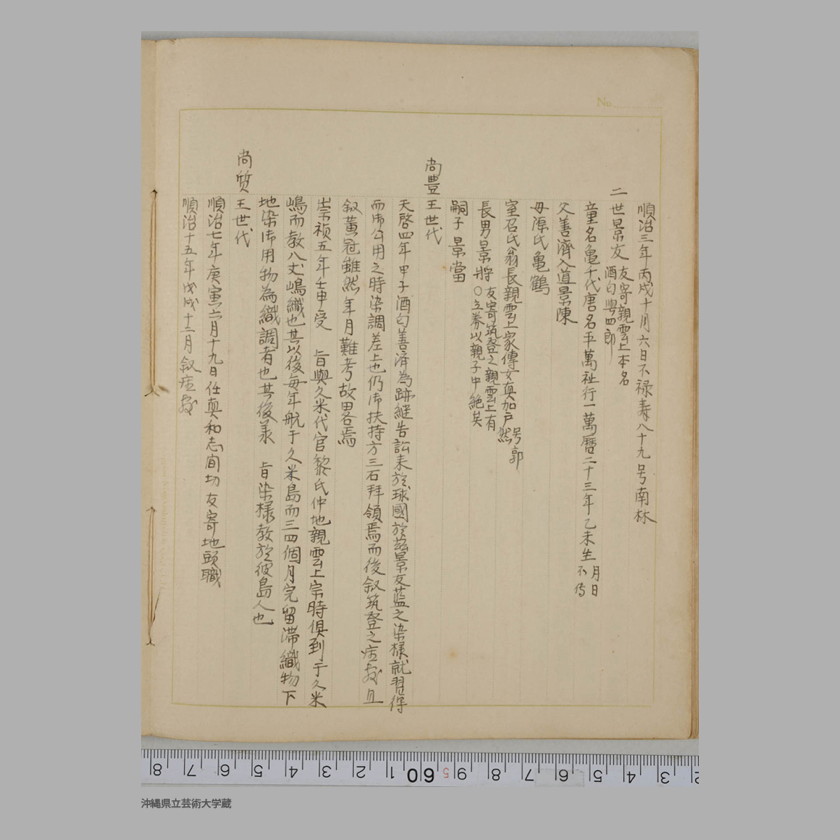 順治三年丙戌十月六日不禄寿八十九号南林
二世景友 友寄親雲上本名
酒匂四郎
童名亀千代唐名平萬祉行一萬暦二十三年乙未生 月日不傳
父善濟入道景陳
母源氏亀鶴
室召氏翁長親雲上家傳女真加戸 号郭然
長男景將 友寄筑登之親雲上有
〇立養以親子中絶矣
嗣子景當
尚豊王世代
天啓四年甲子酒匂善済為跡継告訟来於球國於茲景友藍之染様就習得
而御公用之時染調差上也仍御扶持方三石拝領焉而後叙筑登之座敷且
叙黄冠雖然年月難考故畧焉
崇禎五年壬申受 旨與久米代官黎氏仲地親雲上宗時俱到于久米
嶋而教八丈嶋織也其以後毎年航于久米島而三四個月完留滞織物下
地染御用物為織調者也其後承 旨染様教於彼島人也
尚質王世代
順治七年庚寅六月十九日任真和志間切友寄地頭職
順治十五年戊戌十二月叙座敷
No.
8 7 6 5 4 3 2 1 60 9 5 8 7 6 5 4 3 2
沖縄県立芸術大学蔵